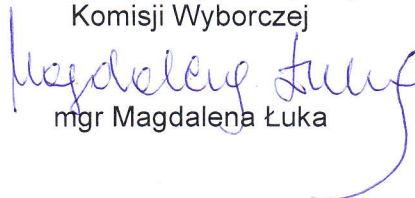 Komisji Wyborczej
Magdalena Łuka
mgr Magdalena Łuka